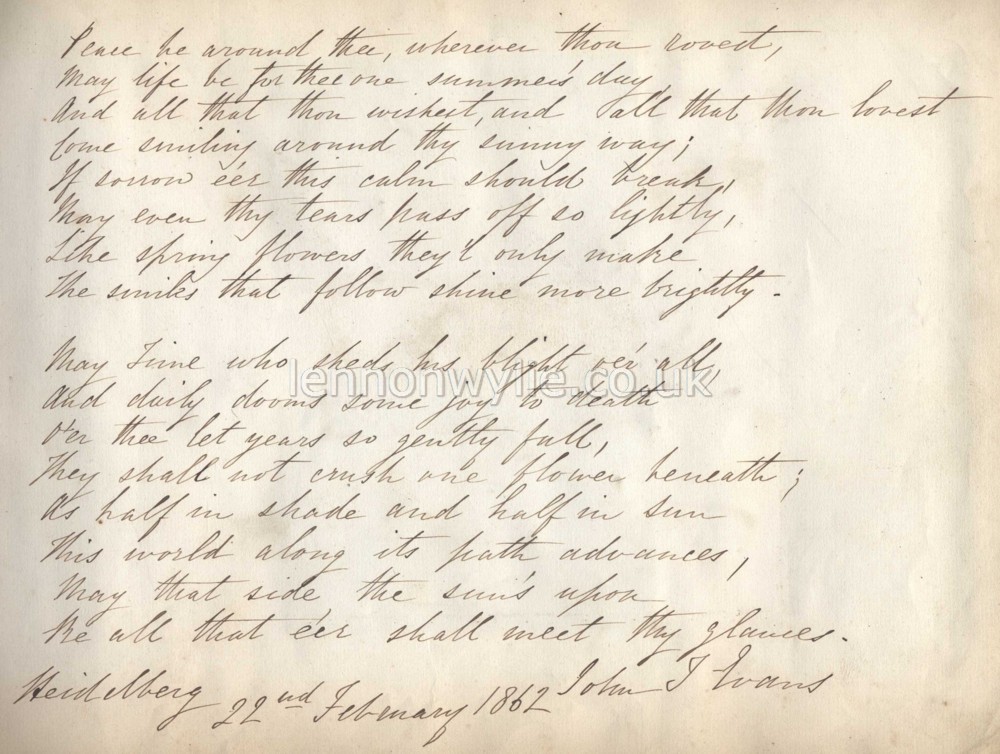 Peace be around thee, wherever thou rovest,
May life be for thee one summer's day,
And all that thou wishest, and all that thou lovest
Come smiling around thy sunny way;
If sorrow e'er this calm should break,
May even thy tears pass off so lightly,
Like spring flowers they'l only make
The smiles that follow shine more brightly.
May Time who sheds his blight o'er all,
And daily dooms some joy to death
O'er thee let years so gently fall,
They shall not crush one flower beneath;
As half in shade and half in sun
This world along its path advances,
May that side the sun's upon
Be all that e'er shall meet thy glances.
Heidelberg 22nd February 1862 John T Evans
lennonwylie.co.uk